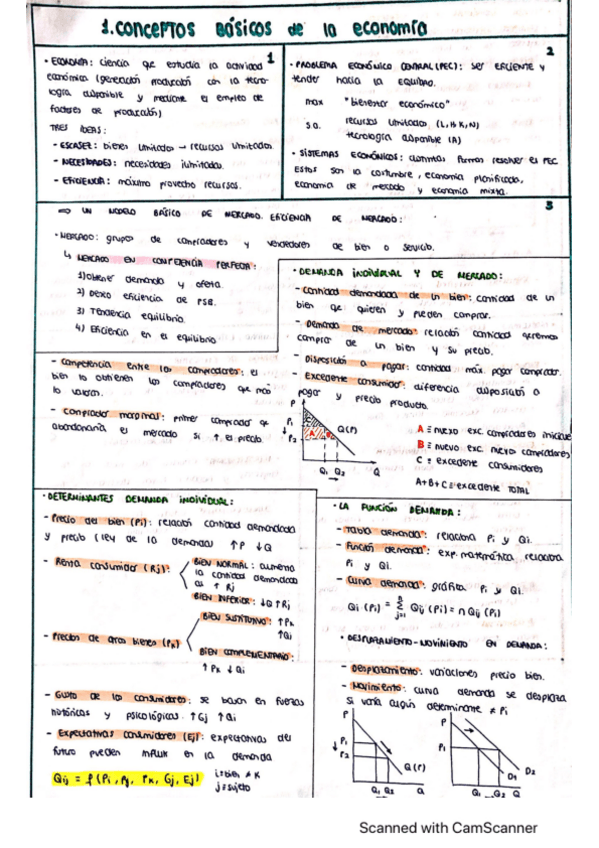 1. CONCEPTOS BÁSICOS de la economía
1
· ECONOMÍA: ciencia que estudia la actividad
económica (generación producción con la tecno-
logía disponible y mediante el empleo de
factores de producción)
TRES IDEAS:
- ESCASEZ: bienes limitados → recursos limitados
- NECESIDADES: necesidades ilimitadas.
- EFICIENCIA: máximo provecho recursos.
2
· PROBLEMA ECONÓMICO CENTRAL (PEC): ser EFICIENTE y
tender hacia la equilibrio.
max "bienestar económico"
s.a. recursos limitados (L, H, K, N)
tecnología disponible (A)
· SISTEMAS ECONÓMICOS: distintas formas resolver el PEC
Estos son la costumbre, economía planificada,
economía de mercado y economía mixta.
3
=> UN MODELO BÁSICO DE MERCADO. EFICIENCIA DE MERCADO:
· MERCADO: grupos de compradores y vendedores de bien o servicio.
↳ MERCADO EN COMPETENCIA PERFECTA:
1) obtener demanda y oferta.
2) eficiencia de
3) Tendencia equilibrio.
4) Eficiencia en el equilibrio
- Competencia entre los compradores: el
bien lo obtienen los compradores que más
lo valoran.
- Comprador marginal: primer comprador que
abandonaría el mercado si ↑ el precio.
· DEMANDA INDIVIDUAL Y DE MERCADO:
- Cantidad demandada de un bien: cantidad de un
bien que quieren y pueden comprar.
- Demanda de mercado: relación cantidad queremos
comprar de un bien y su precio.
- Disposición a pagar: cantidad máx. pagar comprador.
- Excedente consumidor: diferencia disposición a
pagar y precio producto.
P
P1
↓ P2
C
A B
Q(P)
Q1 Q2 Q
A = nuevo exc. compradores iniciale
B = nuevo exc. nuevo compradores
C = excedente consumidores
A+B+C = excedente TOTAL
· DETERMINANTES DEMANDA INDIVIDUAL:
- Precio del bien (Pi): relación cantidad demandada
y precio (ley de la demanda) ↑P ↓Q
- Renta consumidor (Rj):
BIEN NORMAL: aumenta
la cantidad demandada
al ↑ Rj
BIEN INFERIOR: ↓Q ↑Rj
- Precios de otros bienes (Pk)
BIEN SUSTITUTIVO: ↑Pk
↑Qi
BIEN COMPLEMENTARIO:
↑ Pk ↓ Qi
- Gusto de los consumidores: se basan en fuerzas
históricas y psicológicas. ↑Gj ↑Qi
- Expectativas consumidores (Ej): expectativas del
futuro pueden influir en la demanda
Qij = f(Pi, Rj, Pk, Gj, Ej)
i = bien ≠ K
j = sujeto
· LA FUNCIÓN DEMANDA:
- Tabla demanda: relaciona Pi y Qi.
- Función demanda: exp. matemática relaciona
Pi y Qi.
- Curva demanda: gráfica Pi y Qi.
Qi (Pi) = Σ Qij (Pi) = n Qij (Pi)
n
j=1
· DESPLAZAMIENTO - MOVIMIENTO EN DEMANDA:
- Desplazamiento: variaciones precio bien.
- Movimiento: curva demanda se desplaza
si varía algún determinante ≠ Pi
P
P1
↓ P2
Q(P)
Q1 Q2 Q
P
P1
D1 D2
Q1 Q2 Q
Scanned with CamScanner